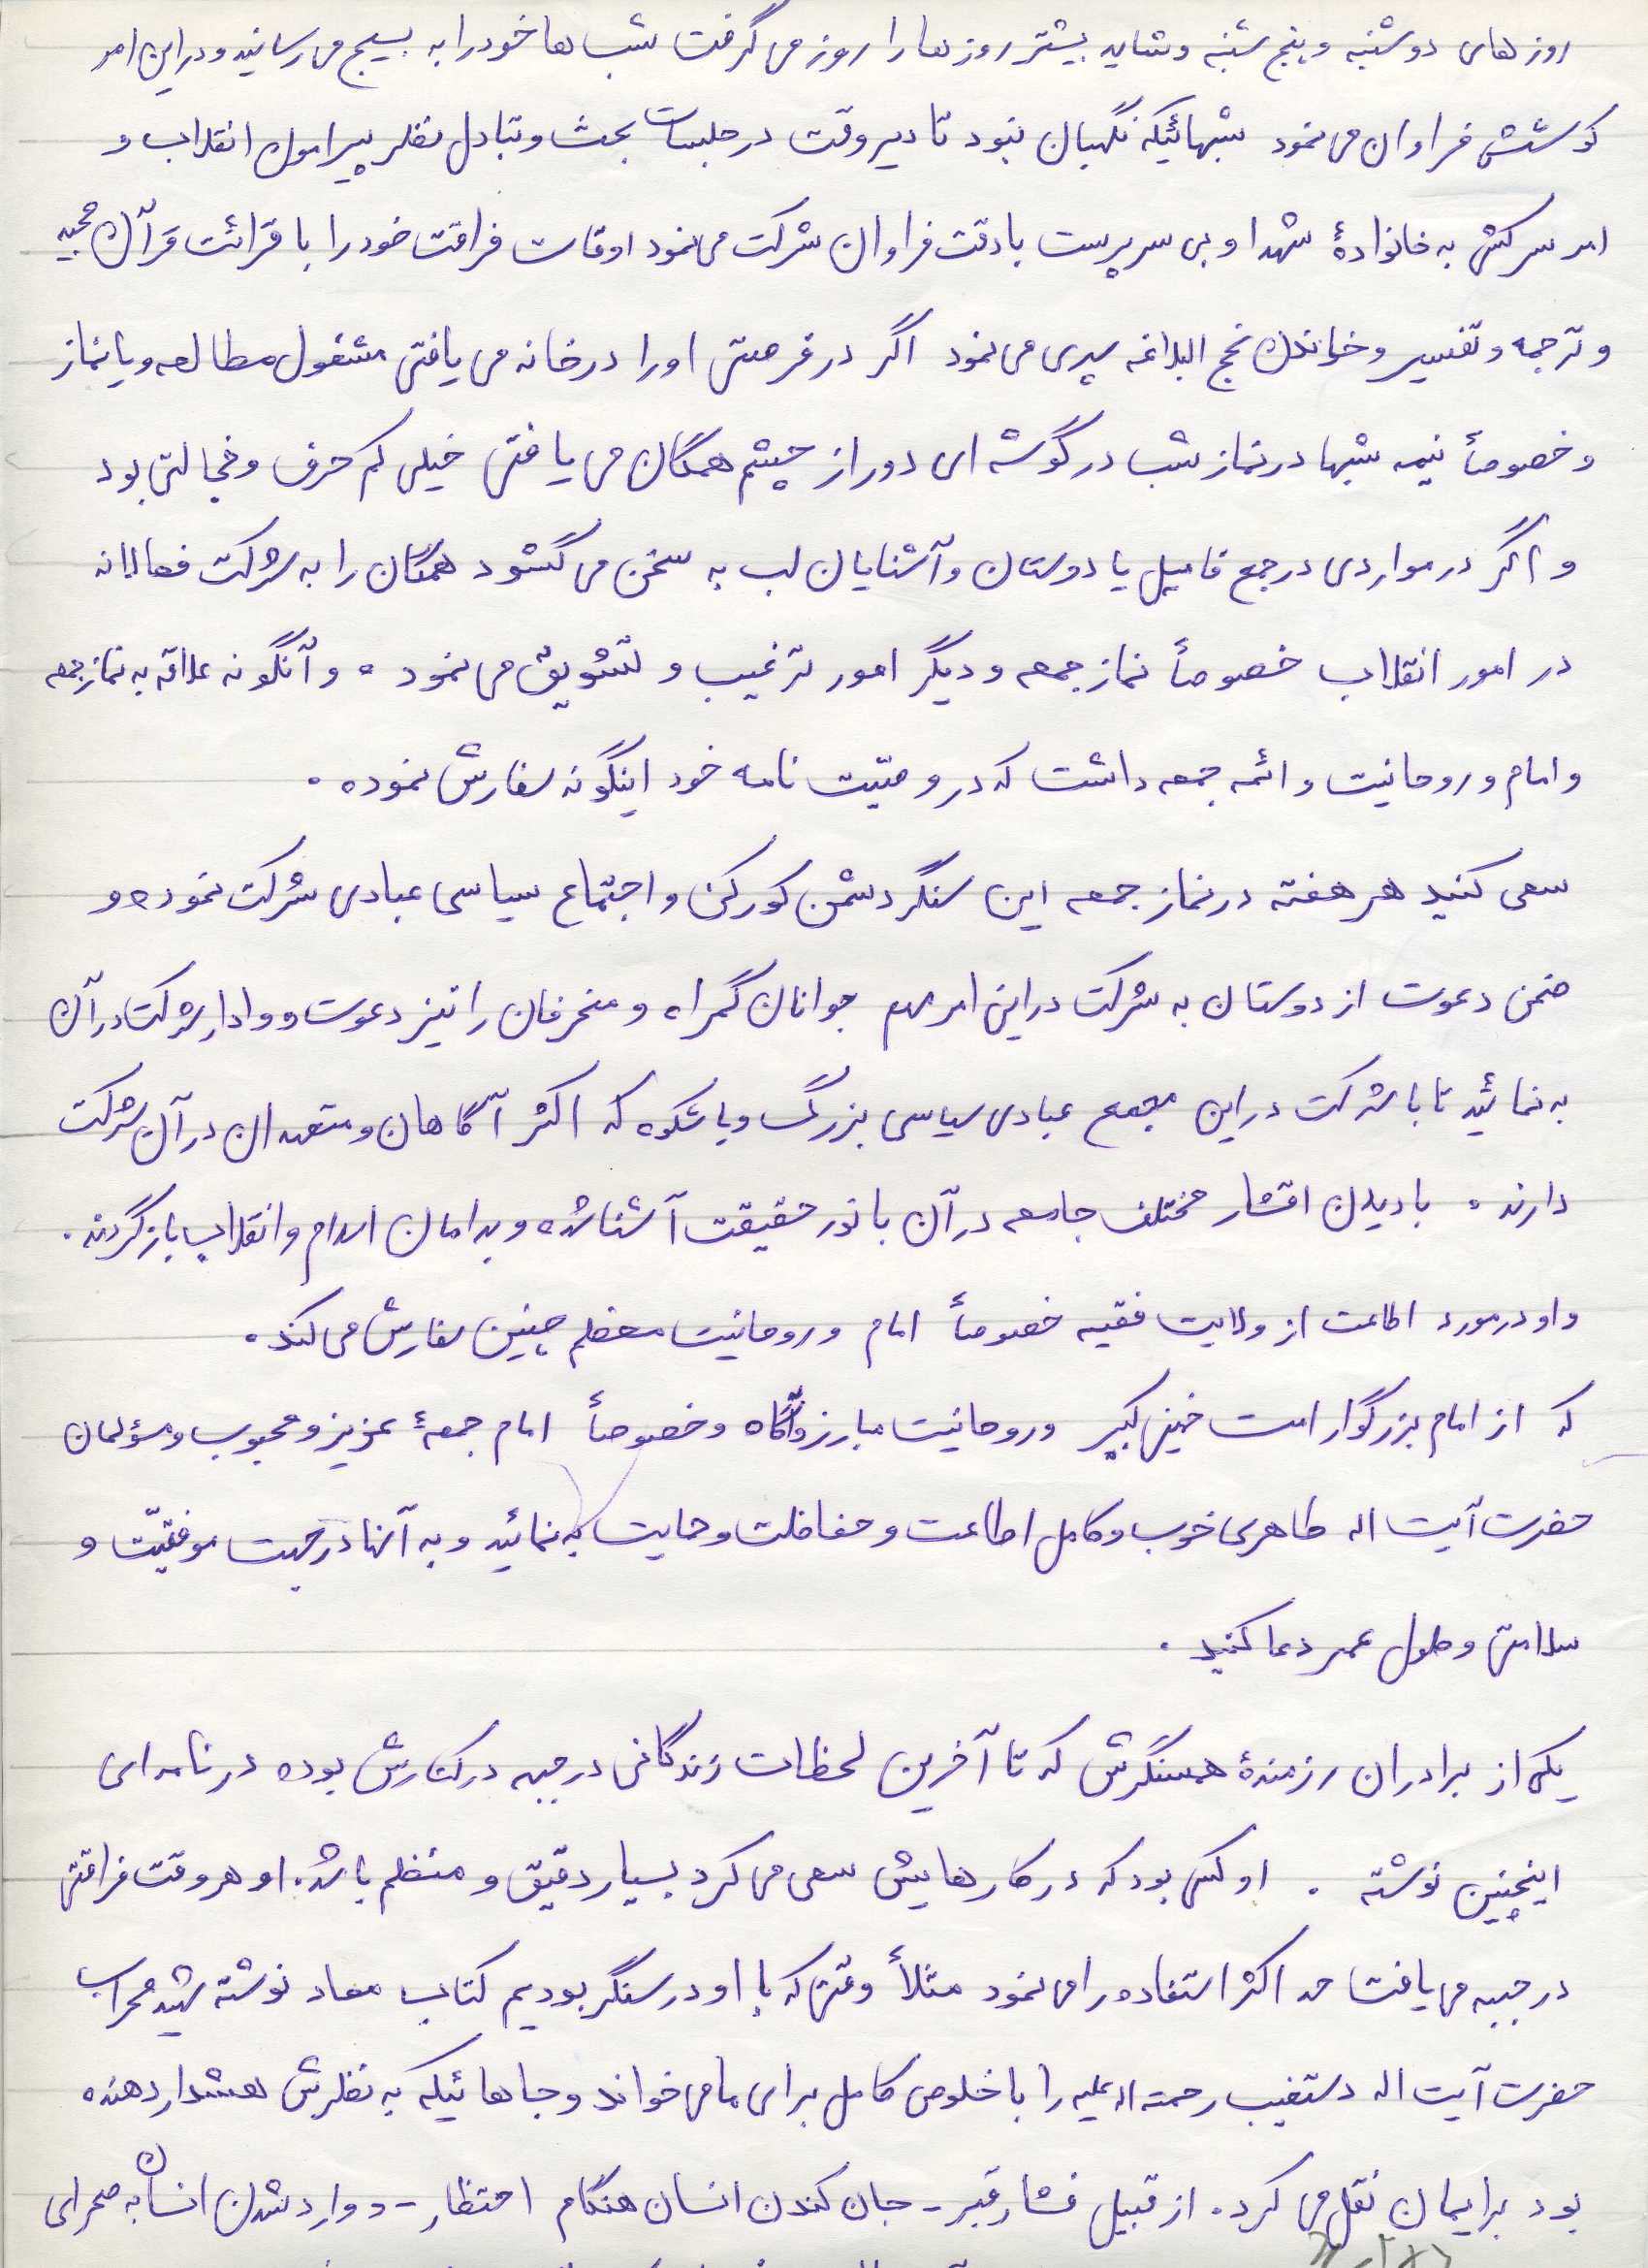 روزهای دوشنبه و پنج شنبه و شاید بیشتر روزها را روزه می گرفت شب ها خود را به بسیج می رسانید و در این امر
کوشش فراوان می نمود شبهائیکه نگهبان نبود تا دیر وقت در جلسات بحث و تبادل نظر پیرامون انقلاب و
امر سرکشی به خانوادهٔ شهدا و بی سرپرست با دقت فراوان شرکت می نمود اوقات فراقت خود را با قرائت قرآن مجید
و ترجمه و تفسیر و خواندن نهج البلاغه سپری می نمود اگر در فرصتی او را در خانه می یافتی مشغول مطالعه و یا نماز
و خصوصاً نیمه شبها در نماز شب در گوشه ای دور از چشم همگان می یافتی خیلی کم حرف و خجالتی بود
و اگر در مواردی در جمع فامیل یا دوستان و آشنایان لب به سخن می گشود همگان را به شرکت فعالانه
در امور انقلاب خصوصاً نماز جمعه و دیگر امور ترغیب و تشویق می نمود . و آنگونه علاقه به نماز جمعه
و امام و روحانیت و ائمه جمعه داشت که در وصیّت نامه خود اینگونه سفارش نموده .
سعی کنید هر هفته در نماز جمعه این سنگر دشمن کورکن و اجتماع سیاسی عبادی شرکت نموده و
ضمن دعوت از دوستان به شرکت در این امر مهم جوانان گمراه و منحرفان را نیز دعوت و وادار شرکت در آن
به نمائید تا با شرکت در این مجمع عبادی سیاسی بزرگ و باشکوه که اکثر آگاهان و متعهدان در آن شرکت
دارند . با دیدن اقشار مختلف جامعه در آن با نور حقیقت آشنا شده و بدامان اسلام و انقلاب بازگردند .
و او در مورد اطاعت از ولایت فقیه خصوصاً امام و روحانیت معظم چنین سفارش می کند .
که از امام بزرگوار امت خمینی کبیر و روحانیت مبارز و آگاه و خصوصاً امام جمعهٔ عزیز و محبوب و مسؤلمان
حضرت آیت اله طاهری خوب و کامل اطاعت و حفاظت و حمایت به نمائید و به آنها در جهت موفقیّت و
سلامتی و طول عمر دعا کنید .
یکی از برادران رزمندهٔ همسنگرش که تا آخرین لحظات زندگانی در جبهه در کنارش بوده در نامه ای
اینچنین نوشته . او کسی بود که در کارهایش سعی می کرد بسیار دقیق و منظم باشد . او هر وقت فراقتی
در جبهه می یافت حد اکثر استفاده را می نمود مثلاً وقتی که با او در سنگر بودیم کتاب معاد نوشته شهید محراب
حضرت آیت اله دستغیب رحمت اله علیه را با خلوص کامل برای ما می خواند و جاهائیکه به نظرش هشدار دهنده
بود برایمان نقل می کرد . از قبیل فشار قبر - جان کندن انسان هنگام احتظار - و وارد شدن انسان به صحرای